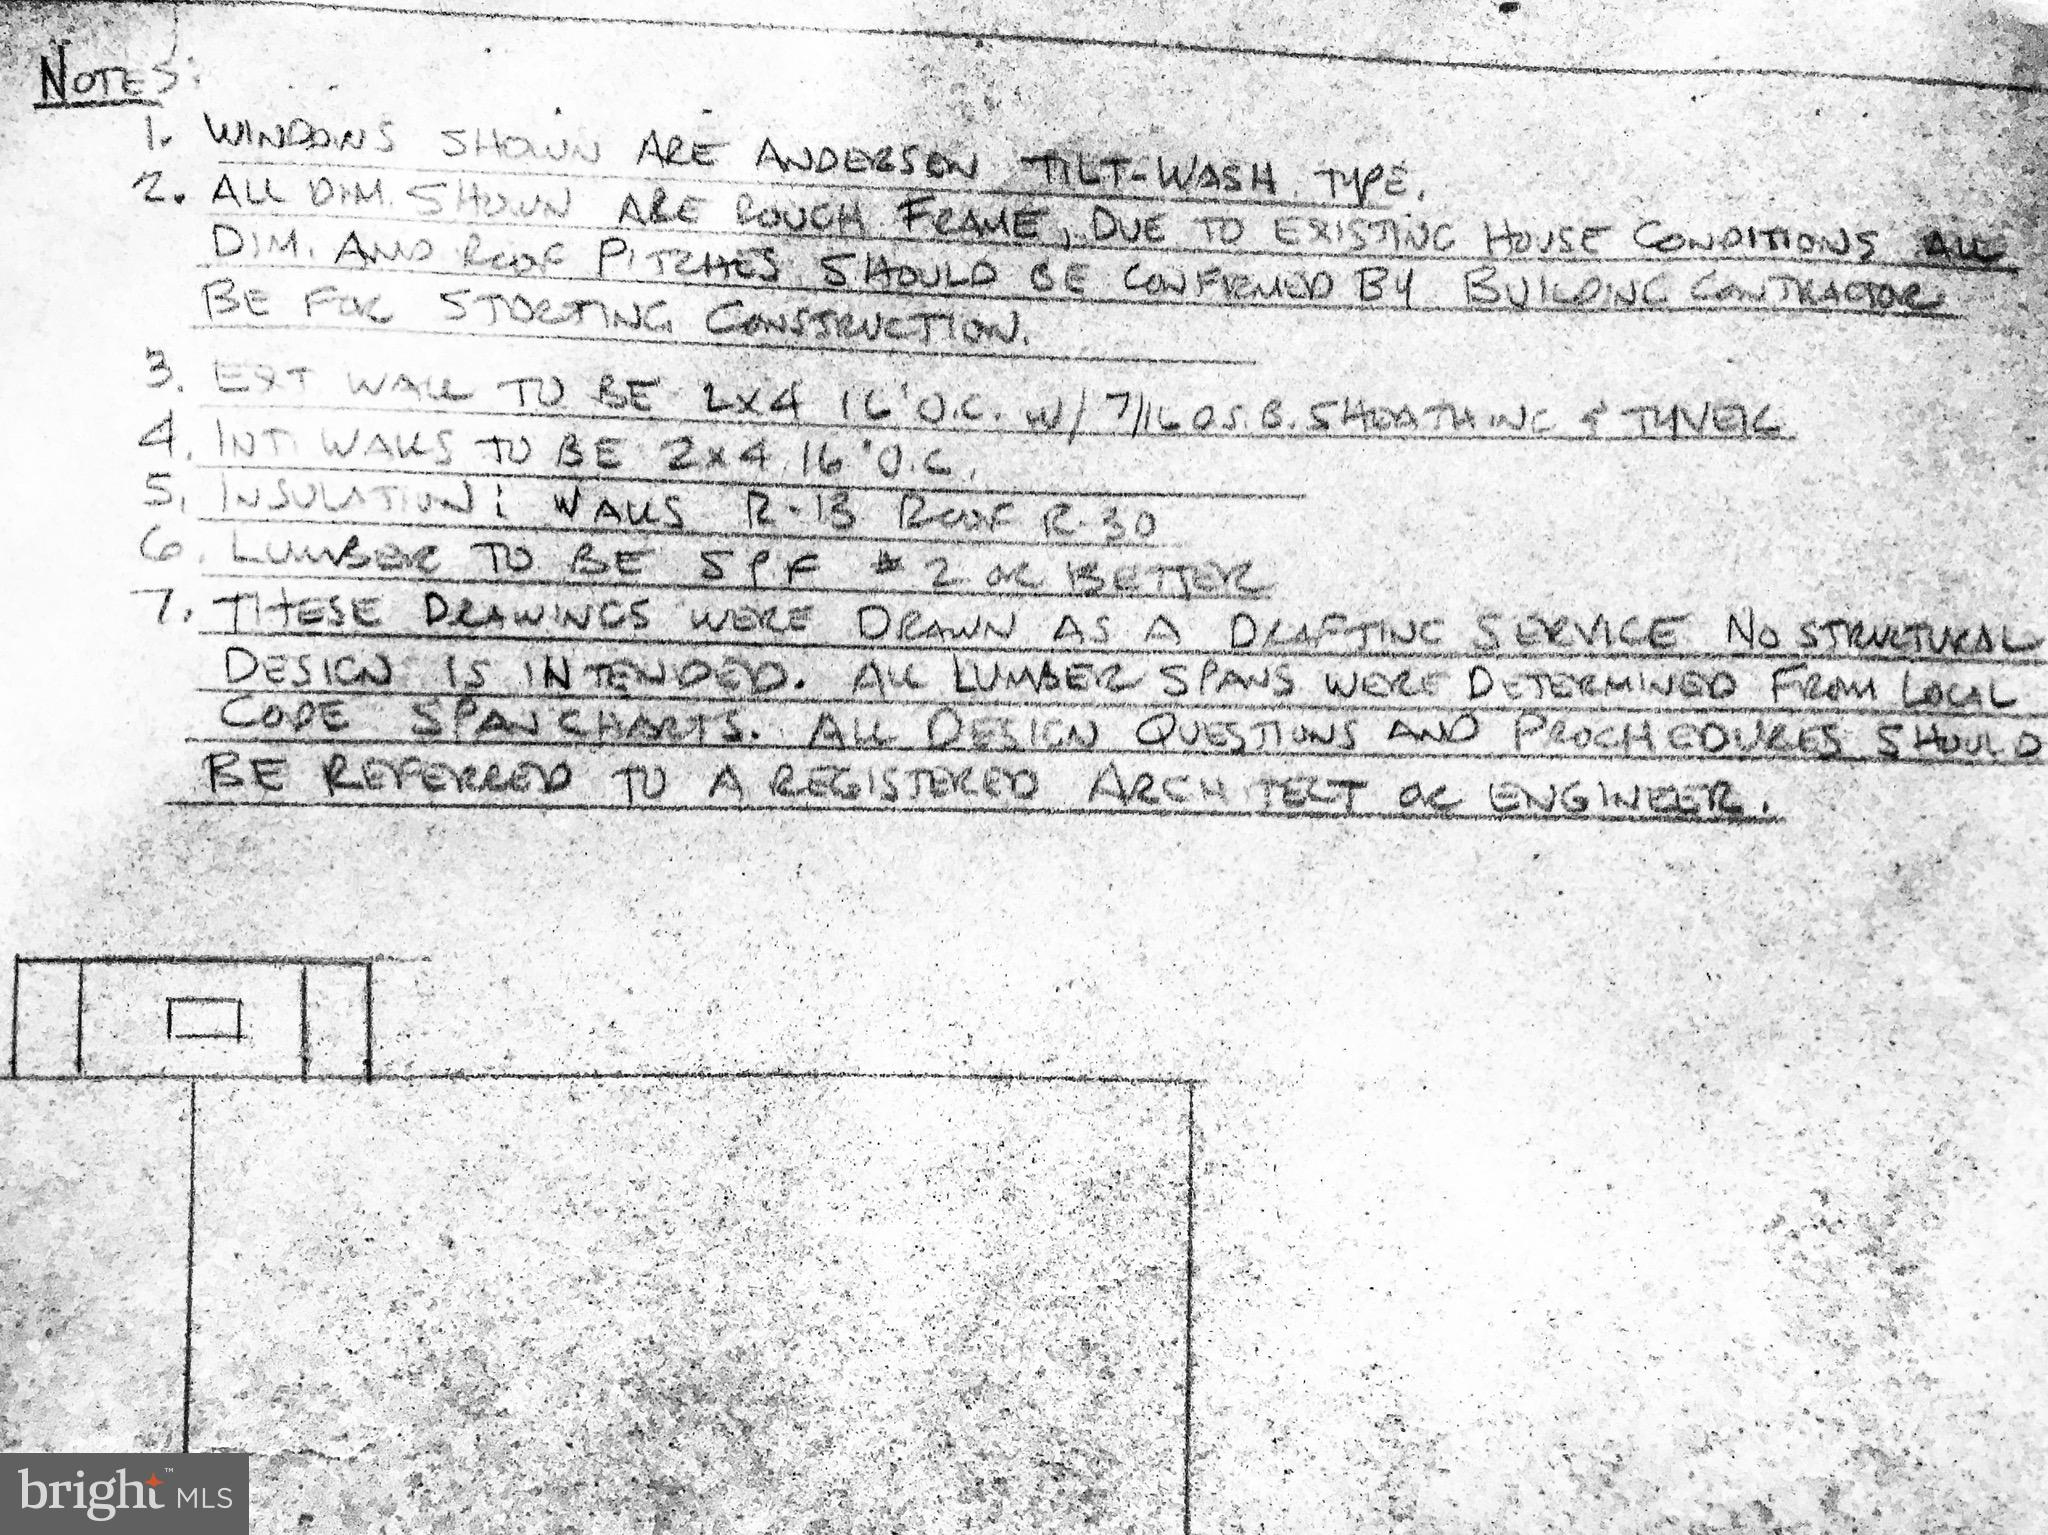 NOTES:
1. WINDOWS SHOWN ARE ANDERSEN TILT-WASH TYPE.
2. ALL DIM. SHOWN ARE ROUGH FRAME, DUE TO EXISTING HOUSE CONDITIONS ALL
DIM. AND ROOF PITCHES SHOULD BE CONFIRMED BY BUILDING CONTRACTOR
BE FOR STORTING CONSTRUCTION.
3. EXT WALL TO BE 2X4 16" O.C. W/ 7/16 O.S.B. SHEATHING & TYVEK
4. INT. WALLS TO BE 2X4 16" O.C.
5. INSULATION: WALLS R-13 ROOF R-30
6. LUMBER TO BE SPF #2 OR BETTER
7. THESE DRAWINGS WERE DRAWN AS A DRAFTING SERVICE NO STRUCTURAL
DESIGN IS INTENDED. ALL LUMBER SPANS WERE DETERMINED FROM LOCAL
CODE SPAN CHARTS. ALL DESIGN QUESTIONS AND PROCHEDURES SHOULD
BE REFERRED TO A REGISTERED ARCHITECT OR ENGINEER.
bright™ MLS